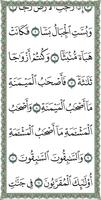 إِذَا رُجَّتِ ٱلۡأَرۡضُ رَجّٗا
وَبُسَّتِ ٱلۡجِبَالُ بَسّٗا ۝ فَكَانَتۡ
هَبَآءٗ مُّنۢبَثّٗا ۝ وَكُنتُمۡ أَزۡوَٰجٗا
ثَلَٰثَةٗ ۝ فَأَصۡحَٰبُ ٱلۡمَيۡمَنَةِ
مَآ أَصۡحَٰبُ ٱلۡمَيۡمَنَةِ ۝ وَأَصۡحَٰبُ
ٱلۡمَشۡـَٔمَةِ مَآ أَصۡحَٰبُ ٱلۡمَشۡـَٔمَةِ
۝ وَٱلسَّٰبِقُونَ ٱلسَّٰبِقُونَ ۝
أُوْلَٰٓئِكَ ٱلۡمُقَرَّبُونَ ۝ فِي جَنَّٰتِ